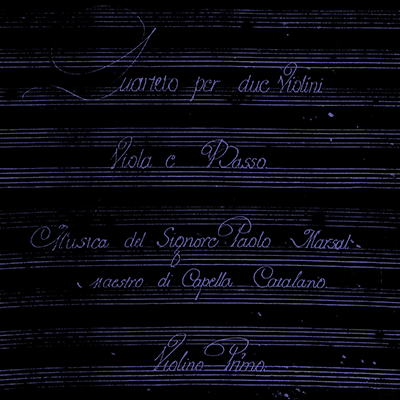 Quarteto per due Violini
Viola e Basso.
Musica del Signore Paolo Marsal
Maestro di Capella Catalano.
Violino Primo.